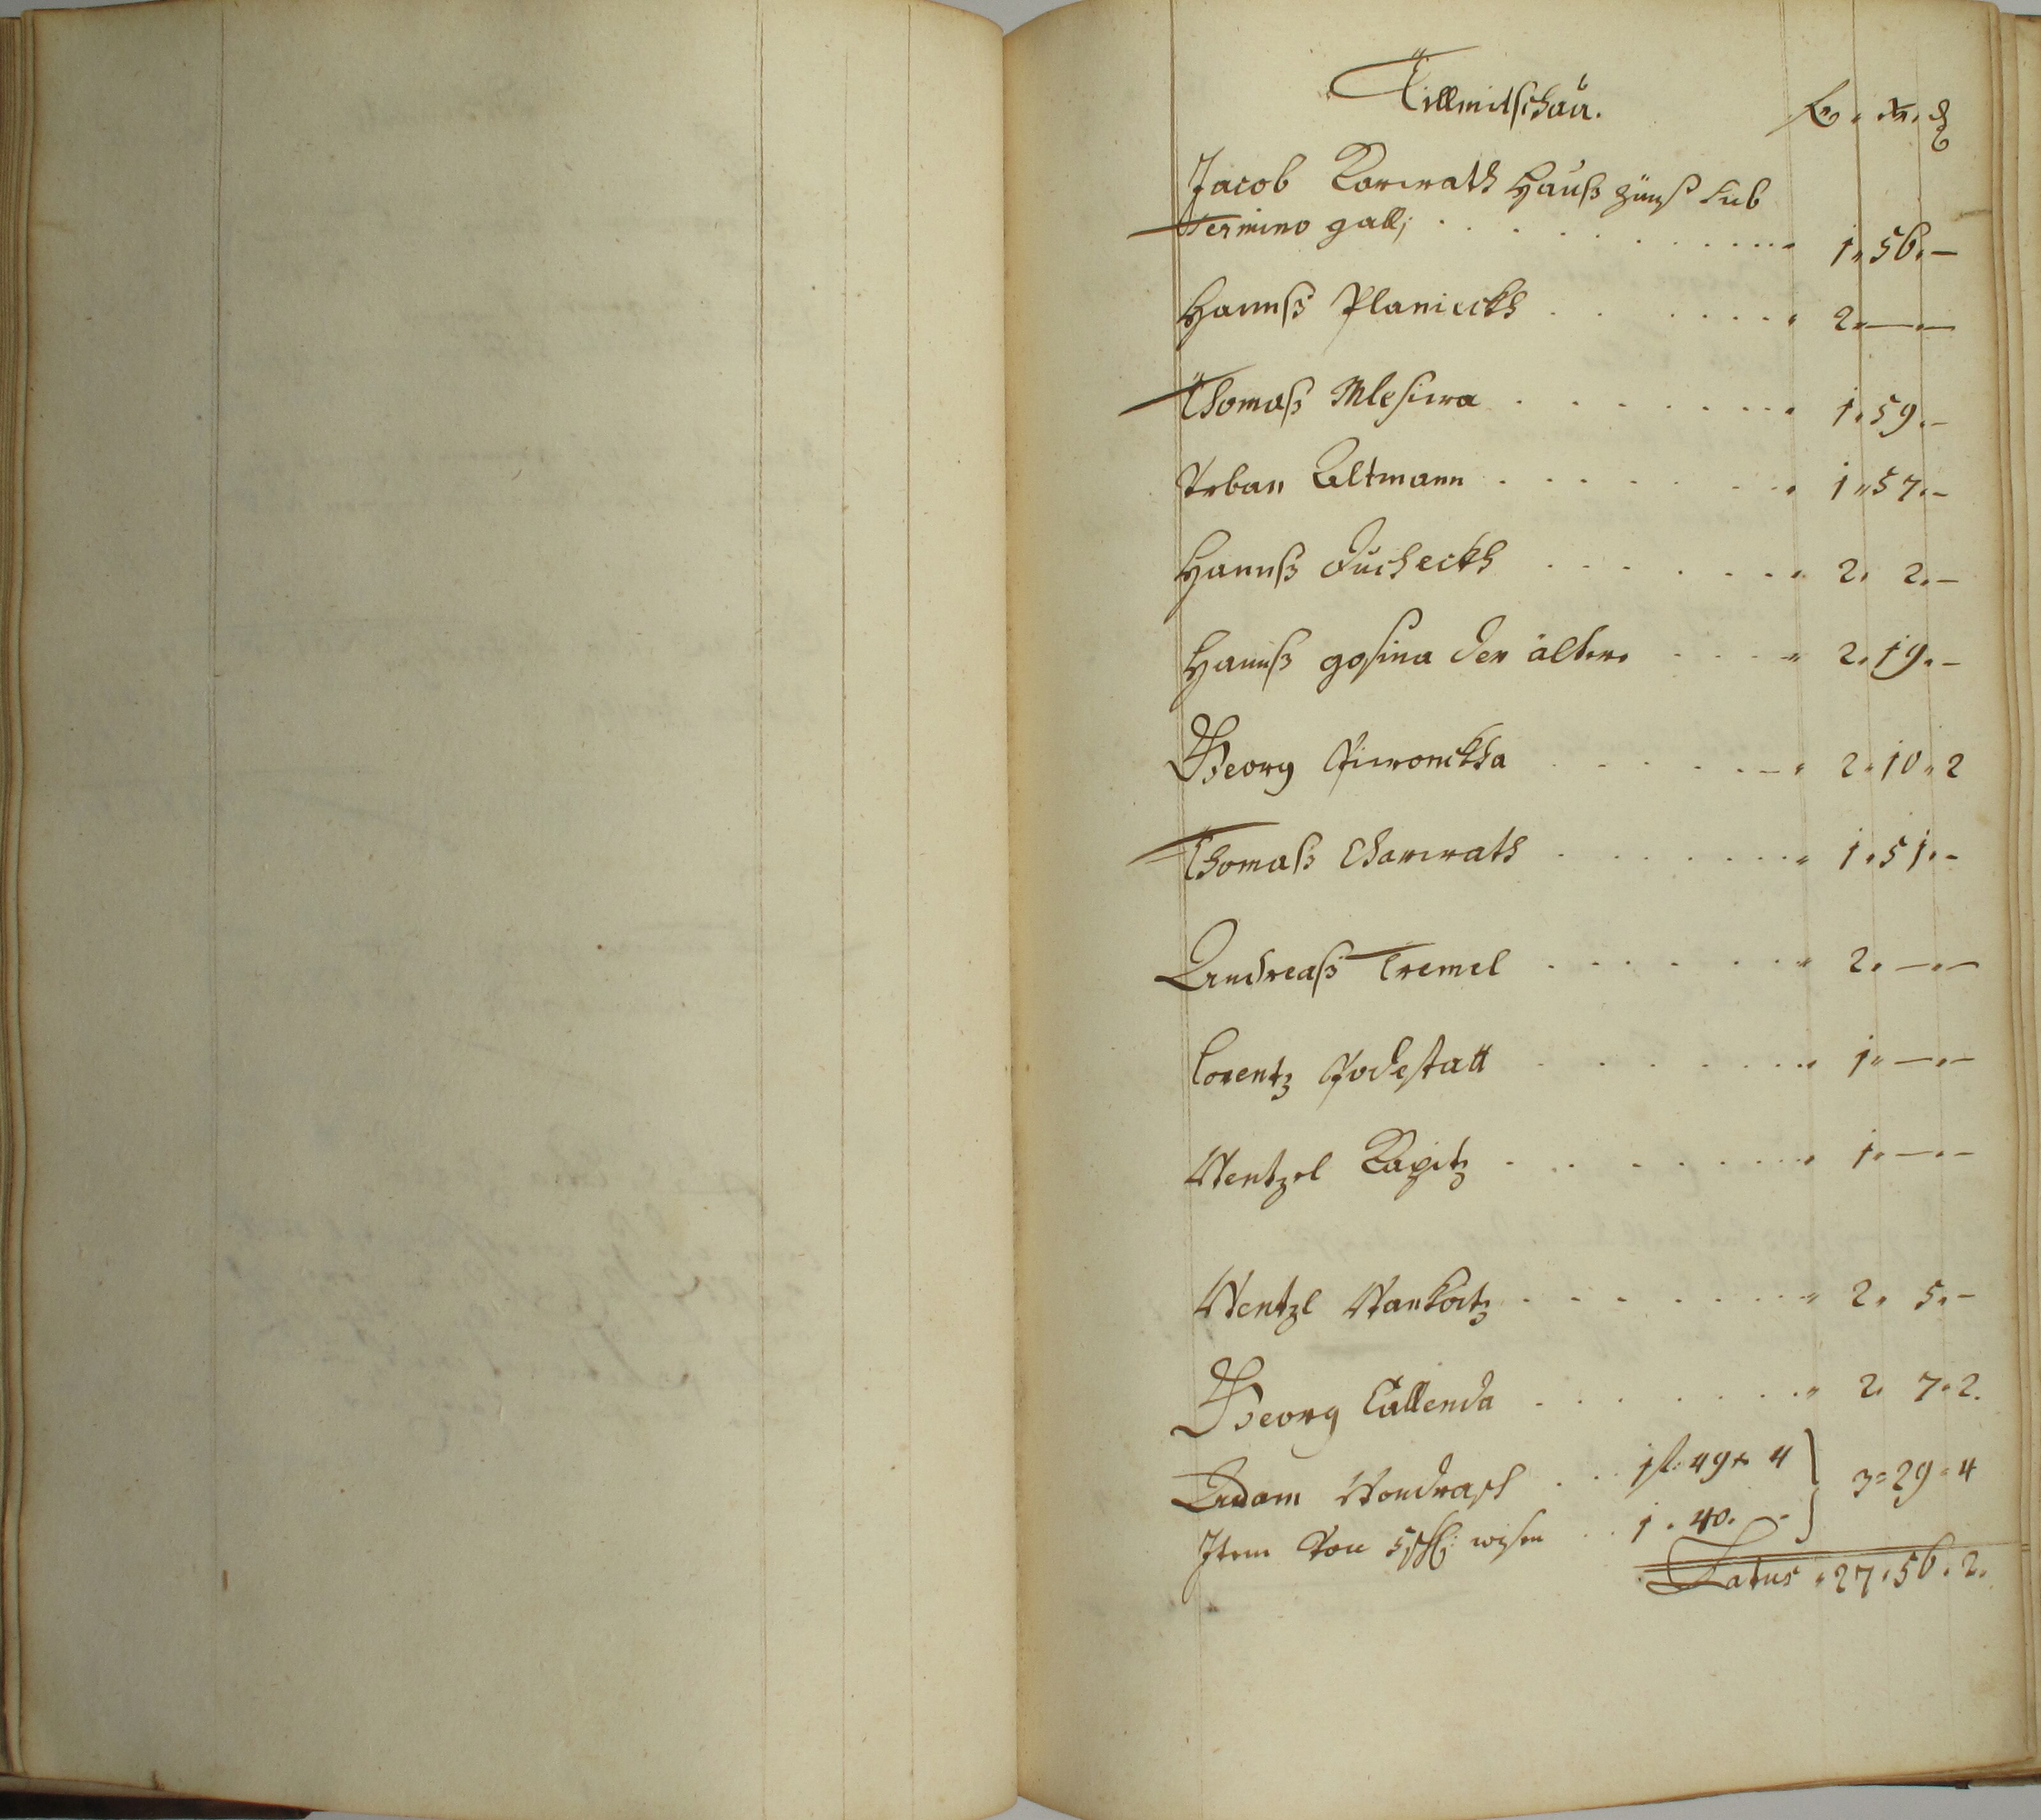 Tillmitschau.
fl. xr. ₰
Jacob Karwath Hauß Zünß sub
Termino galli . . . . . . 1. 56. —
Hannß Planieckh . . . . . . 2. — . —
Thomaß Mlesiwa . . . . . . 1. 59. —
Vrban Altmann . . . . . . 1. 57. —
Hannß Duscheckh . . . . . . 2. 2. —
Hannß gosina der ältere . . . . 2. 19. —
Georg . . . . . . 2. 10. 2
Thomaß Charwath . . . . . . 1. 51. —
Andreaß Tremel . . . . . . 2. — . —
Lorentz Podestatt . . . . . . 1. — . —
Wentzel Kapitz . . . . . . 1. — . —
Wentzl . . . . . . 2. 5. —
Georg Callenda . . . . . . 2. 7. 2.
Adam Wondrasch . . 1 fl. 49 xr 4 } 3 = 29 = 4
Item Von wisen . . 1. 40. —
Latus . 27. 56. 2.